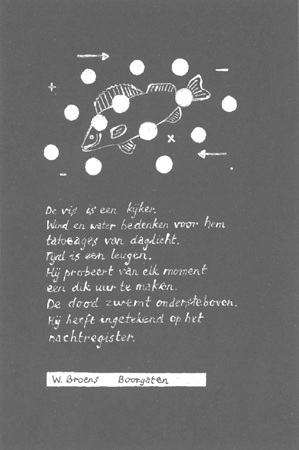 De vis is een kijker.
Wind en water bedenken voor hem
tatoeages van daglicht.
Tijd is een leugen.
Hij probeert van elk moment
een dik uur te maken.
De dood zwemt ondersteboven.
Hij heeft ingetekend op het
nachtregister.
W. Broens Boorgaten